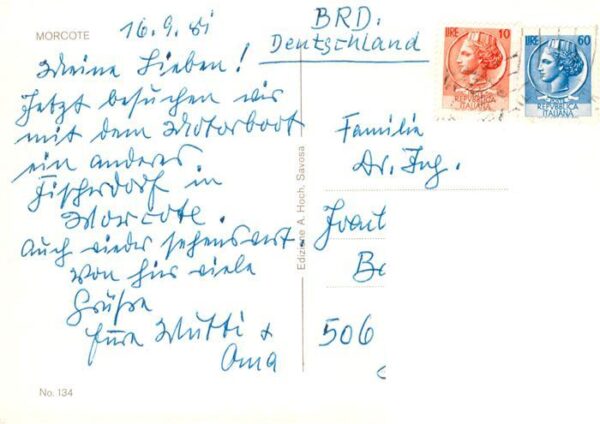 MORCOTE
16.9.81
Meine Lieben!
Jetzt besuchen wir
mit dem Motorboot
ein anderes
Fischerdorf in
Morcote.
Auch wieder sehenswert.
Von hier viele
Grüße
Eure Mutti +
Oma
No. 134
Edizione A. Hoch, Savosa
BRD.
Deutschland
LIRE 10
REPVBBLICA
ITALIANA
LIRE 60
REPVBBLICA
ITALIANA
Familie
Dr. Ing.
Joa
Be
506